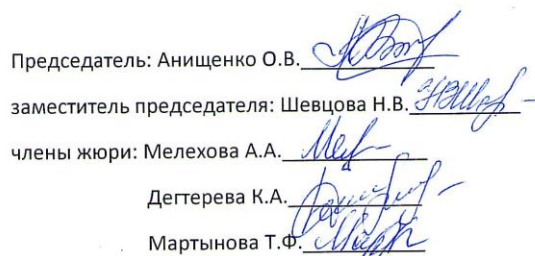 Председатель: Анищенко О.В.
заместитель председателя: Шевцова Н.В.
члены жюри: Мелехова А.А.
Дегтерева К.А.
Мартынова Т.Ф.